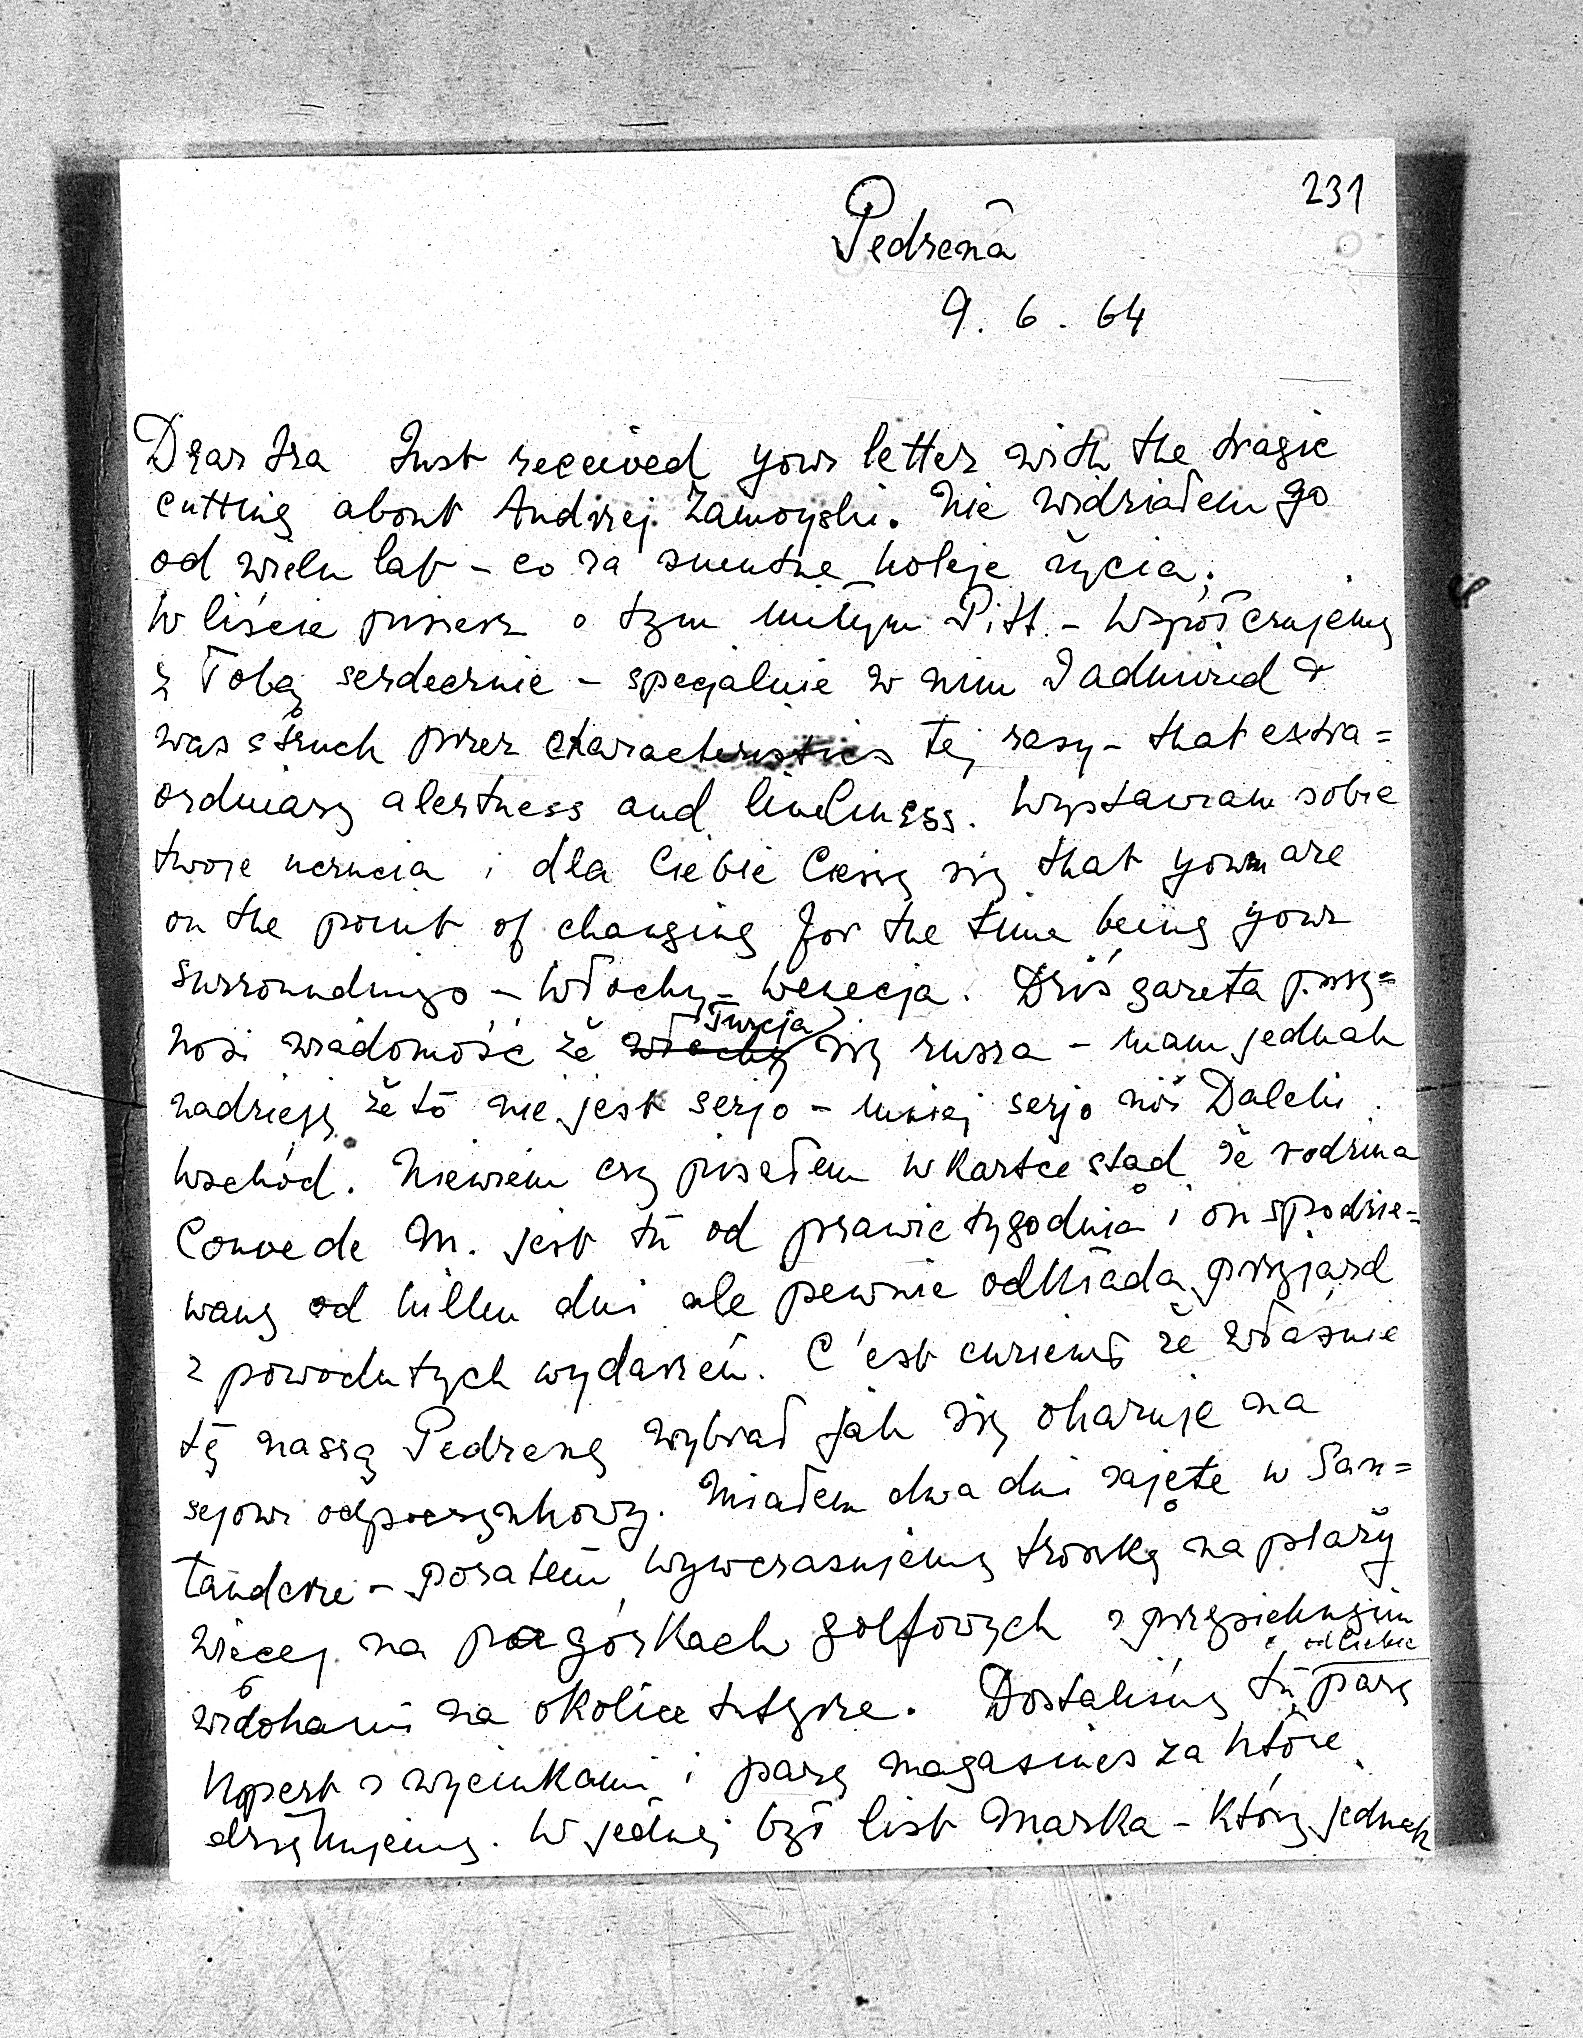 231
Pedrenã
9. 6. 64
Dear Ira Just received your letter with the tragic
cutting about Andrzej Zamoyski. Nie widziałem go
od wielu lat – co za smutne koleje życia.
W liście piszesz o tym miłym Pitt – Współczujemy
z Tobą serdecznie – specjalnie w nim I admired &
was struck przez characteristics tej rasy – that extra=
ordinary alertness and liveliness. Wystawiam sobie
twoje uczucia i dla Ciebie Cieszę się that you are
on the point of changing for the time being your
surroundings – Włochy – Wenecja. Dziś gazeta przy=
nosi wiadomość że włochy Turcja się rusza – mam jednak
nadzieję że to nie jest serjo – mniej serjo niż Daleki
Wschód. Niewiem czy pisałem w kartce stąd że rodzina
Conde de M. jest tu od prawie tygodnia i on spodzie=
wany od kilku dni ale pewnie odkłada przyjazd
z powodu tych wydarzeń. C'est curieux że właśnie
tę naszą Pedrenę wybrał jak się okazuje na
sejour odpoczynkowy. Miałem dwa dni zajęte w San=
tanderze – pozatem wywczasujemy troszkę na plaży
więcej na pagórkach golfowych z przepięknym
widokami na okolice tutejsze. Dostaliśmy tu od Ciebie parę
kopert z wycinkami i parę magasines za które
dziękujemy. W jednej był list Marka – który jednak